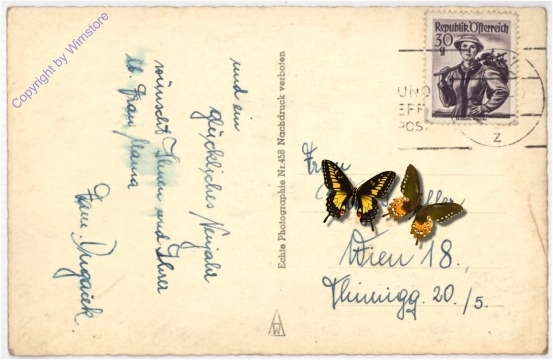 Copyright by Wimstore
und ein
glückliches Neujahr
wünscht Ihnen und Ihrer
w. Frau Mama
Fam.
Echte Photographie Nr.458 Nachdruck verboten
Republik Österreich
30
g
UND
EFF
POST.
Z
Frau
Wien 18,
Thimigg. 20./5.
W